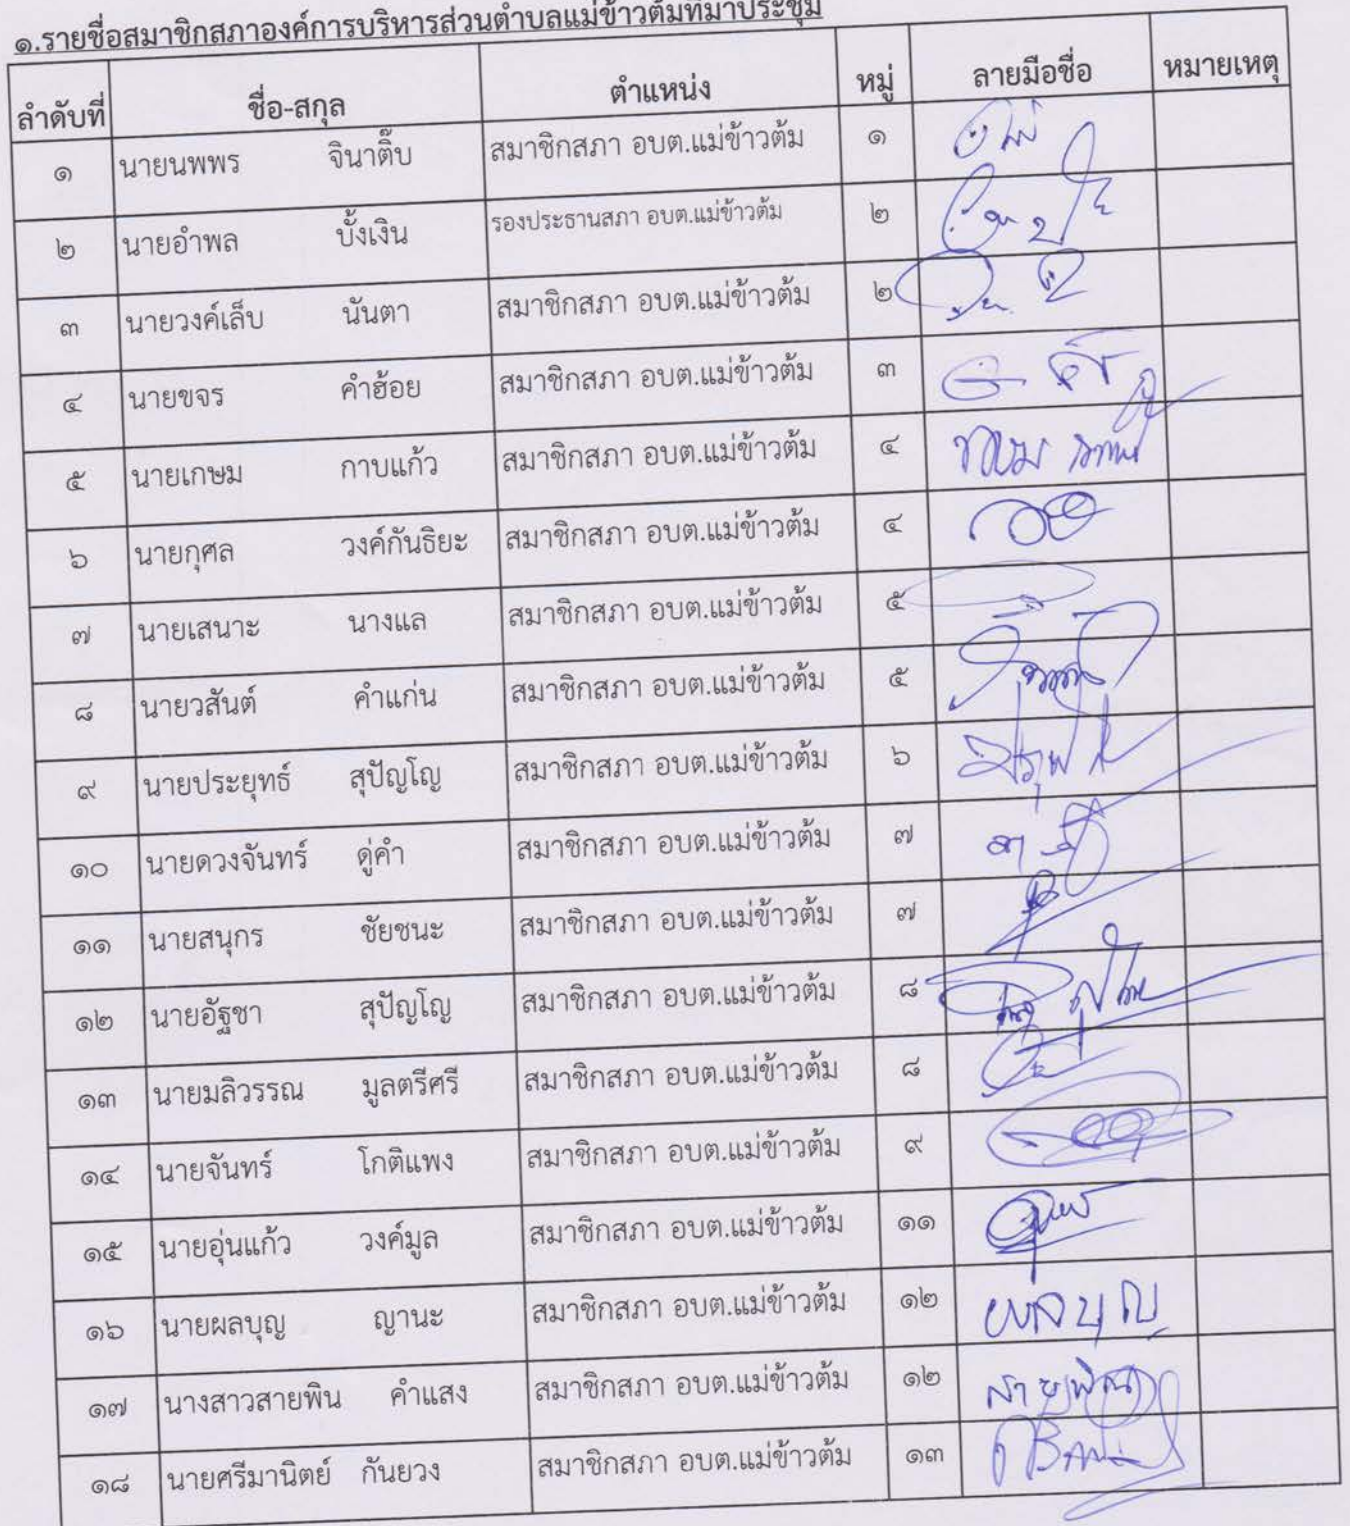 ๑.รายชื่อสมาชิกสภาองค์การบริหารส่วนตำบลแม่ข้าวต้มที่มาประชุม
ลำดับที่ ชื่อ-สกุล ตำแหน่ง หมู่ ลายมือชื่อ หมายเหตุ
๑ นายนพพร จินาติ๊บ สมาชิกสภา อบต.แม่ข้าวต้ม ๑
๒ นายอำพล บั้งเงิน รองประธานสภา อบต.แม่ข้าวต้ม ๒
๓ นายวงค์เล็บ นันตา สมาชิกสภา อบต.แม่ข้าวต้ม ๒
๔ นายขจร คำฮ้อย สมาชิกสภา อบต.แม่ข้าวต้ม ๓
๕ นายเกษม กาบแก้ว สมาชิกสภา อบต.แม่ข้าวต้ม ๔
๖ นายกุศล วงค์กันธิยะ สมาชิกสภา อบต.แม่ข้าวต้ม ๔
๗ นายเสนาะ นางแล สมาชิกสภา อบต.แม่ข้าวต้ม ๕
๘ นายวสันต์ คำแก่น สมาชิกสภา อบต.แม่ข้าวต้ม ๕
๙ นายประยุทธ์ สุปัญโญ สมาชิกสภา อบต.แม่ข้าวต้ม ๖
๑๐ นายดวงจันทร์ ดู่คำ สมาชิกสภา อบต.แม่ข้าวต้ม ๗
๑๑ นายสนุกร ชัยชนะ สมาชิกสภา อบต.แม่ข้าวต้ม ๗
๑๒ นายอัฐชา สุปัญโญ สมาชิกสภา อบต.แม่ข้าวต้ม ๘
๑๓ นายมลิวรรณ มูลตรีศรี สมาชิกสภา อบต.แม่ข้าวต้ม ๘
๑๔ นายจันทร์ โกติแพง สมาชิกสภา อบต.แม่ข้าวต้ม ๙
๑๕ นายอุ่นแก้ว วงค์มูล สมาชิกสภา อบต.แม่ข้าวต้ม ๑๑
๑๖ นายผลบุญ ญานะ สมาชิกสภา อบต.แม่ข้าวต้ม ๑๒ ผลบุญ
๑๗ นางสาวสายพิน คำแสง สมาชิกสภา อบต.แม่ข้าวต้ม ๑๒ สายพิณ
๑๘ นายศรีมานิตย์ กันยวง สมาชิกสภา อบต.แม่ข้าวต้ม ๑๓